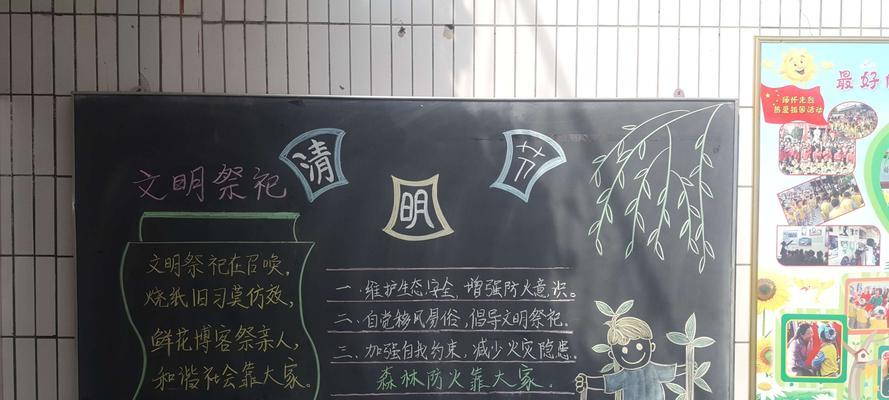 清明节
文明祭祀
文明祭祀在召唤，
烧纸旧习莫仿效，
鲜花博客祭亲人，
和谐社会靠大家。
一．维护生态安全，增强防火意识。
二．自觉移风易俗，倡导文明祭祀．
三．加强自我约束，减少火灾隐患．
森林防火靠大家．
最好
缅怀先烈
热爱祖国活动